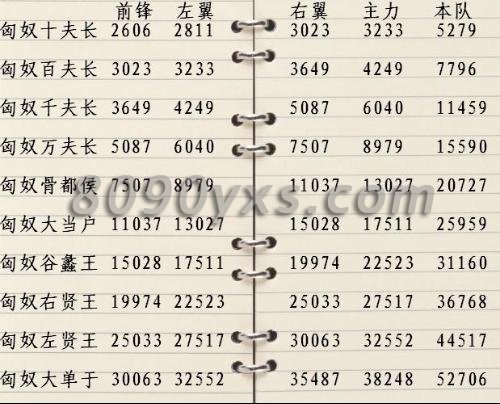 前锋 左翼 右翼 主力 本队
匈奴十夫长 2606 2811 3023 3233 5279
匈奴百夫长 3023 3233 3649 4249 7796
匈奴千夫长 3649 4249 5087 6040 11459
匈奴万夫长 5087 6040 7507 8979 15590
匈奴骨都侯 7507 8979 11037 13027 20727
8090yxs.com
匈奴大当户 11037 13027 15028 17511 25959
匈奴谷蠡王 15028 17511 19974 22523 31160
匈奴右贤王 19974 22523 25033 27517 36768
匈奴左贤王 25033 27517 30063 32552 44517
匈奴大单于 30063 32552 35487 38248 52706